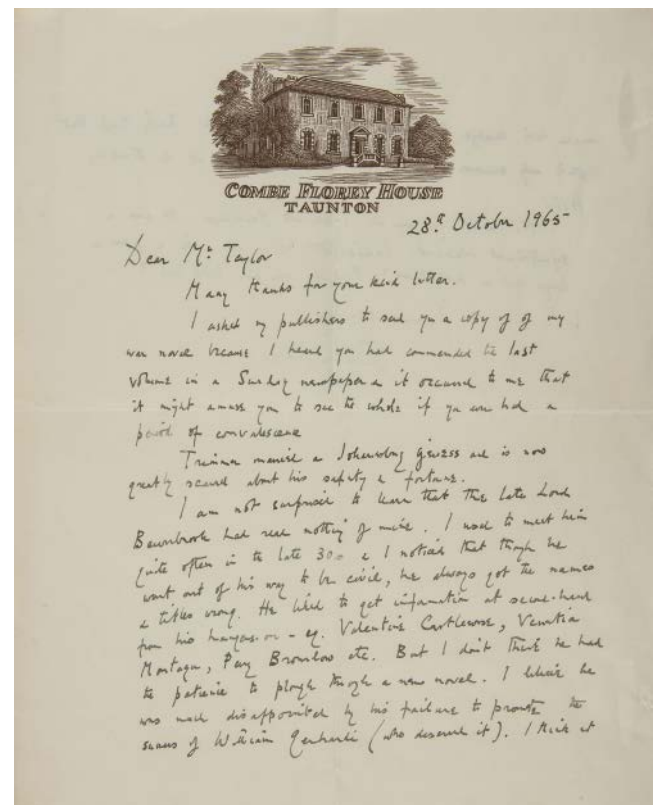 COMBE FLOREY HOUSE
TAUNTON
28th October 1965
Dear Mr Taylor
Many thanks for your kind letter.
I asked my publishers to send you a copy of of my
war novel because I heard you had commended the last
volume in a Sunday newspaper & it occurred to me that
it might amuse you to see the whole if you ever had a
period of convalescence
Trimmer married a Johannesburg Jewess and is now
greatly scared about his safety & fortune.
I am not surprised to learn that the late Lord
Beaverbrook had read nothing of mine. I used to meet him
quite often in the late 30s & I noticed that though he
went out of his way to be civil, he always got the names
& titles wrong. He liked to get information at second-hand
from his hangers-on - eg. Valentine Castlerosse, Venetia
Montagu, Perry Brownlow etc. But I don't think he had
the patience to plough through a new novel. I believe he
was much disappointed by his failure to promote the
success of William Gerhardi (who deserved it). I think it